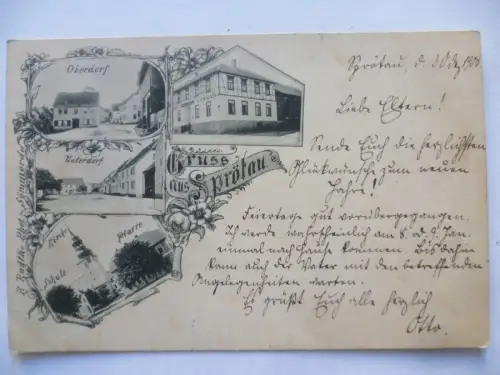 Oberdorf
Unterdorf
Kirche
Pfarre
Schule
Gruss
aus Sprötau.
Sprötau, d. 30 Dez. 1901
Liebe Eltern!
Sende Euch die herzlichsten
Glückwünsche zum neuen
Jahre!
Feiertage gut vorübergegangen.
Ich werde wahrscheinlich am 8. od. 9. Jan.
einmal nach Hause kommen. Bis dahin
kann auch der Vater mit den betreffenden
Angelegenheiten warten.
Es grüßt Euch alle herzlich
Otto.